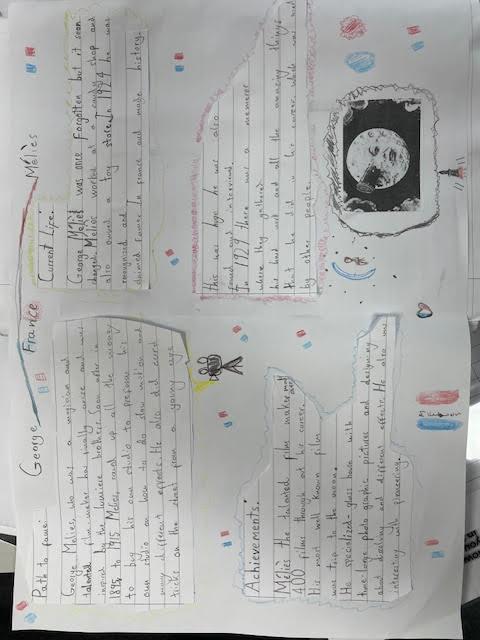 George France Méliès
Path to fame:
George Melies, who was a magician and
talented film maker has finally arrise and was
inspired by the lumiere brothers. Soon after in
1895 to 1915 Méliès, saved up all the money
to buy his own studio to produse his
own studio on how to do slow motion and
many different effects. He also did card
tricks on the street from a young age.
Current Life:
George Méliès was once forgotten but it soon
changed. Méliès worked at a candy shop and
also owned a toy store. In he was
recognized and
claimed fame in france and made history.
Achievements:
Méliès the talented films maker
400 films through at his career.
His most well known films
was trip to the moon.
He specilized glass house with
three large photo graphic pictures and designing
and disolving and different effects. He also was
interesting with pioneering.
this was huge he was also
found and interviewed.
In 1929 there was a
where they gathered
his hard work and all the amazing things
that he did in his career while was had
by other people.